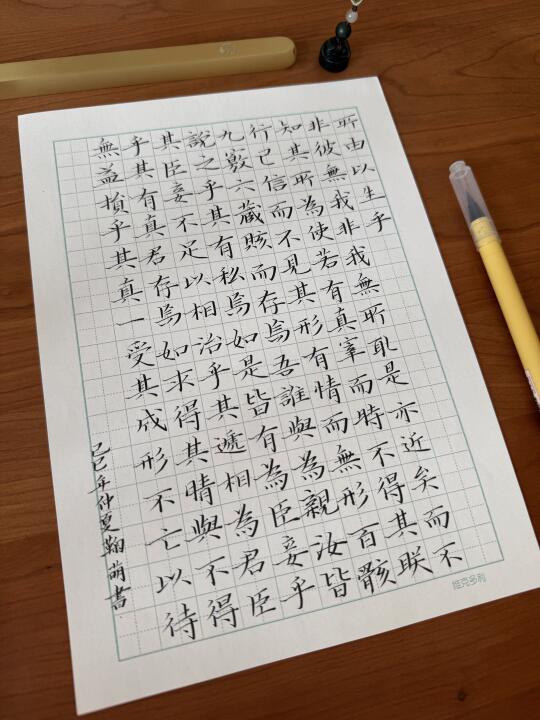 所由以生乎
非彼無我非我無所取是亦近矣而不
知其所為使若有真宰而時不得其朕
行已信而不見其形有情而無形百骸
九竅六藏賅而存焉吾誰與為親汝皆
說之乎其有私焉如是皆有為臣妾乎
其臣妾不足以相治乎其遞相為君臣
乎其有真君存焉如求得其晴與不得
無益損乎其真一受其成形不亡以待
己巳年仲夏翰萌書
維克多利